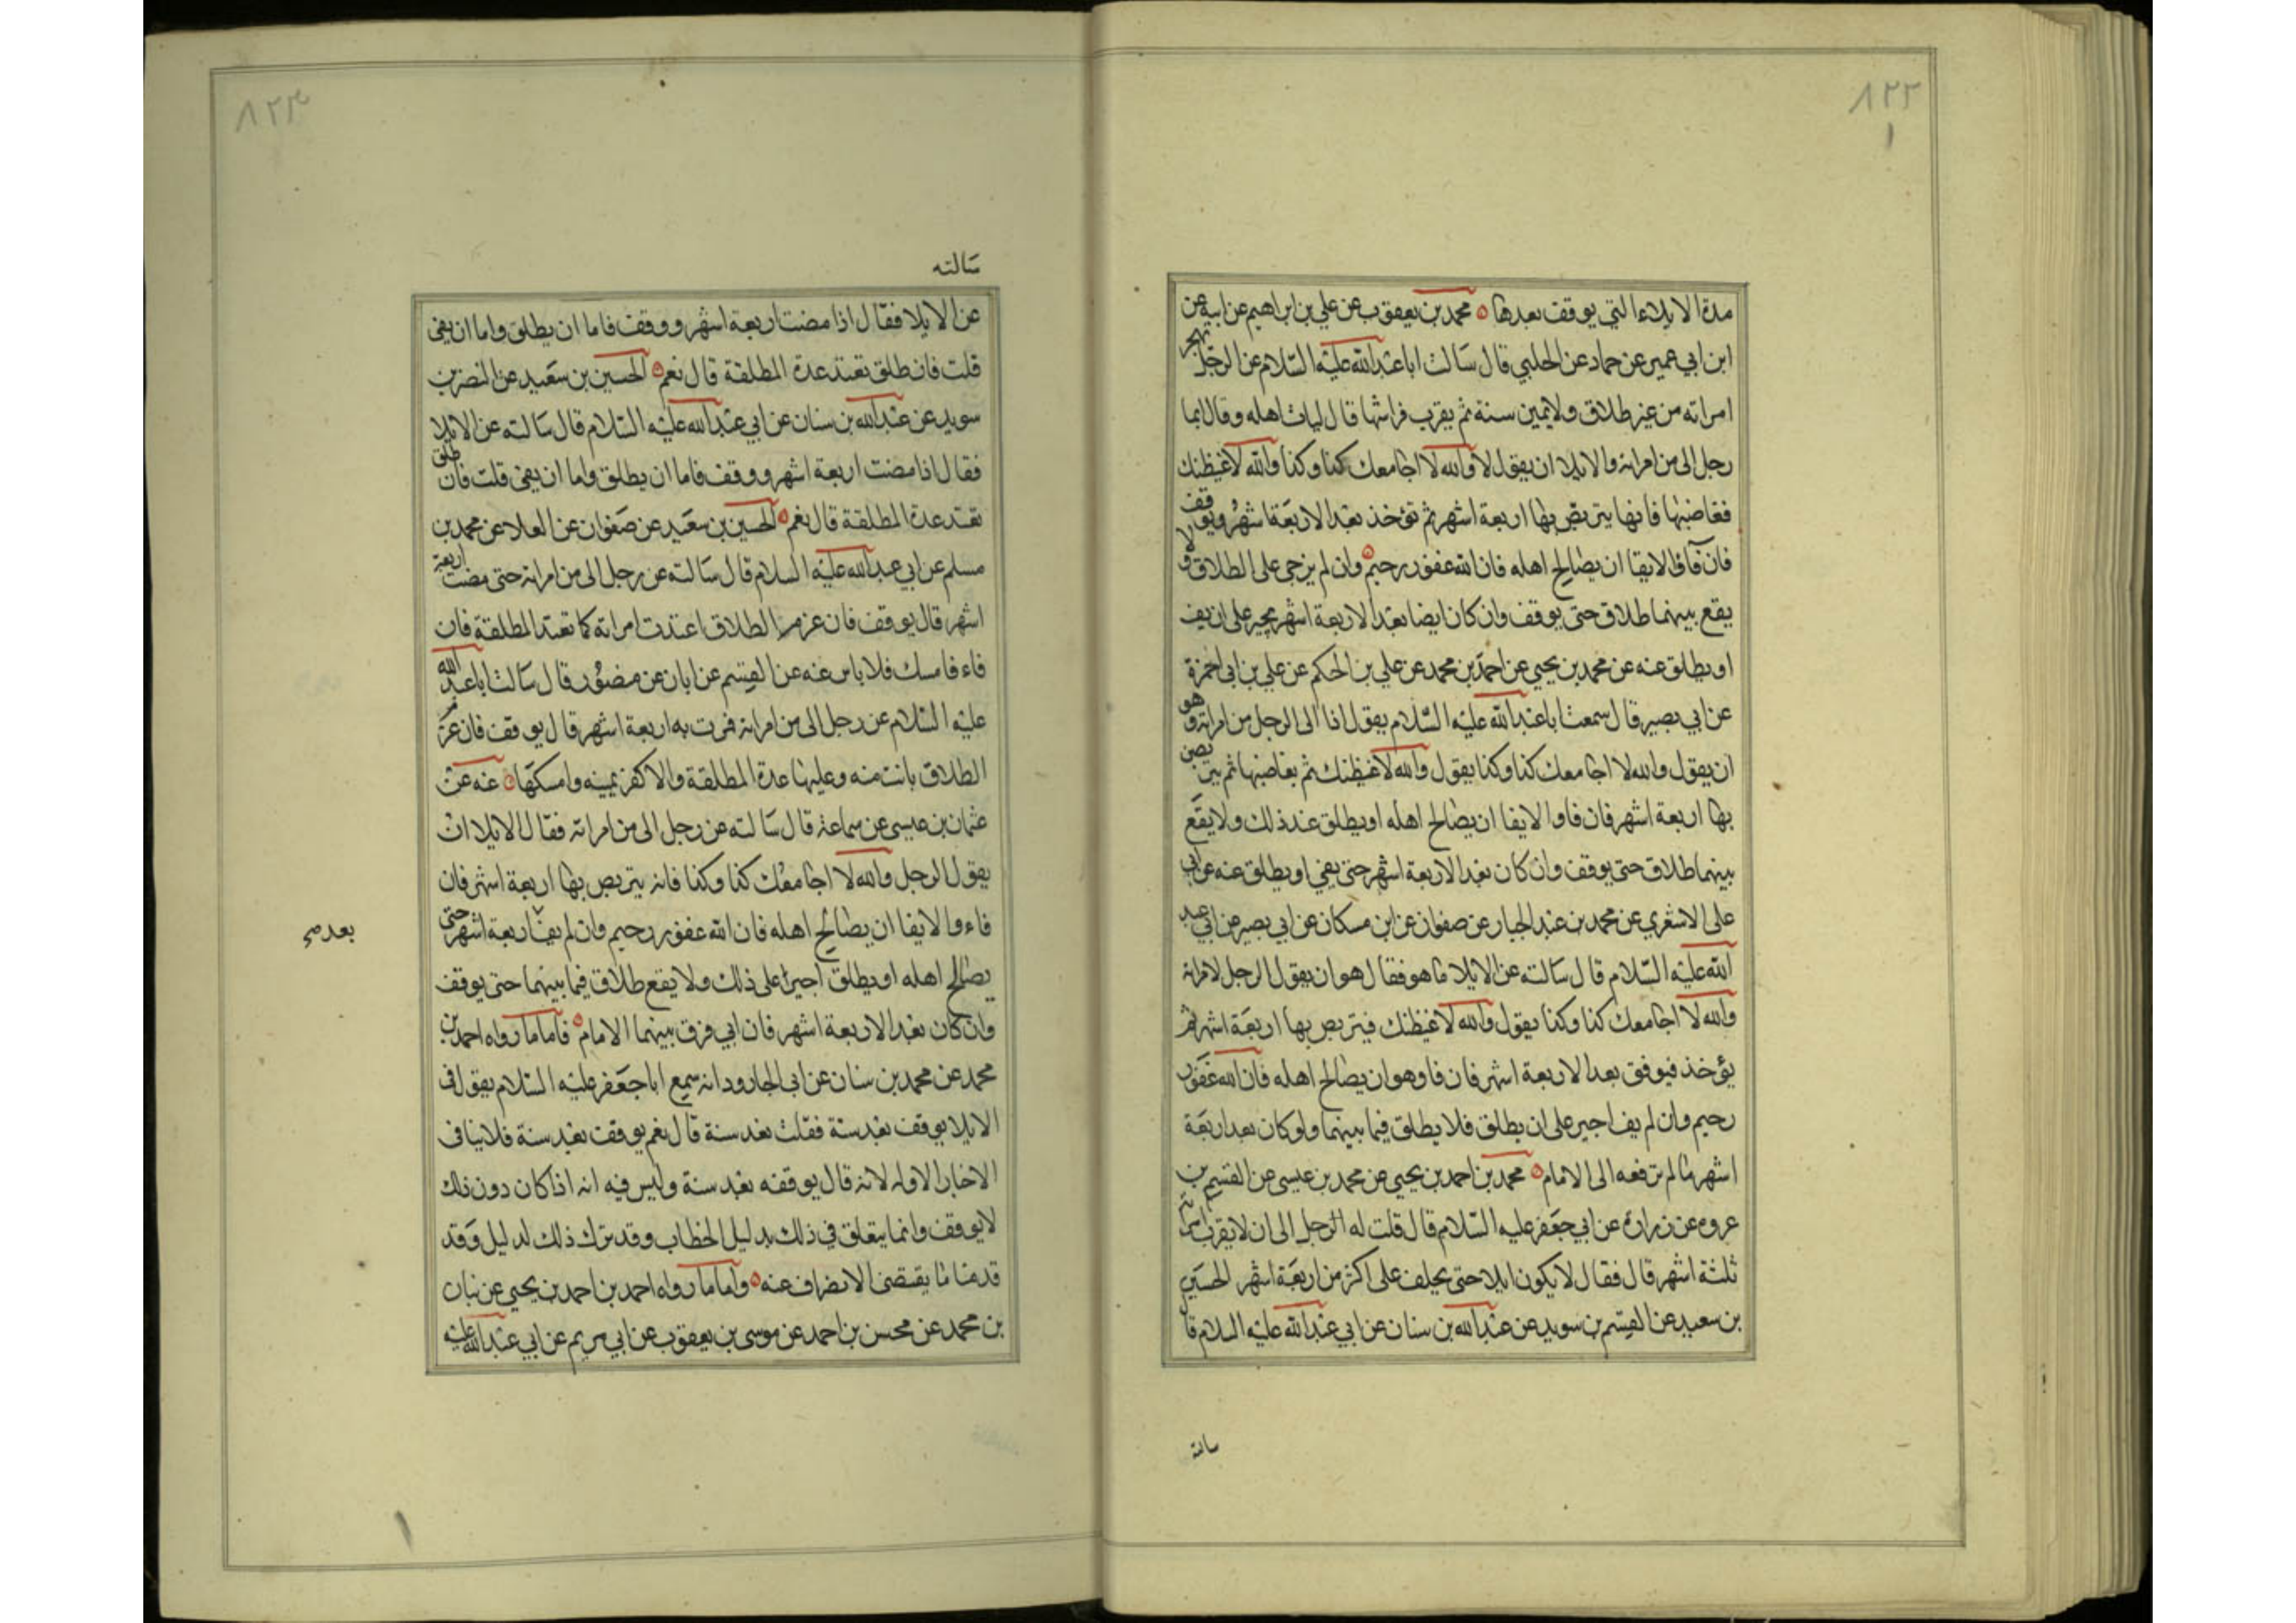 ٨٢٢
مدة الايلاء التي يوقف بعدها محمد بن يعقوب عن علي بن ابراهيم عن ابيه عن
ابن ابي عمير عن حماد عن الحلبي قال سالت ابا عبد الله عليه السلام عن الرجل يهجر
امراته من غير طلاق ولا يمين سنة ثم يقرب فراشها قال ليات اهله وقال ايما
رجل الى من امراته والايلا ان يقول لا والله لا اجامعك كذا وكذا والله لاغيظنك
فغاضبها فانها يتربص بها اربعة اشهر ثم تؤخذ بعد الاربعة اشهر ويوقف
فان فآ والايفا ان يصالح اهله فان الله غفور رحيم وان لم يزجى على الطلاق ولا
يقع بينهما طلاق حتى يوقف وان كان ايضا بعد الاربعة اشهر يجبر على ان يف
او يطلق عنه عن محمد بن يحيى عن احمد بن محمد عن علي بن الحكم عن علي بن ابى حمزة
عن ابي بصير قال سمعت ابا عبد الله عليه السلام يقول اذا الى الرجل من امراته وهو
ان يقول والله لا اجامعك كذا وكذا يقول والله لاغيظنك ثم يغاضبها ثم يتربص
بها اربعة اشهر فان فاوا الايفا ان يصالح اهله او يطلق عند ذلك ولا يقع
بينهما طلاق حتى يوقف وان كان بعد الاربعة اشهر حتى يفي او يطلق عنه عن ابي
على الاشعري عن محمد بن عبد الجبار عن صفوان عن ابن مسكان عن ابي بصير عن ابي عبد
الله عليه السلام قال سالته عن الايلا ما هو فقال هو ان يقول الرجل لامراته
والله لا اجامعك كذا وكذا يقول والله لاغيظنك فيتربص بها اربعة اشهر ثم
يؤخذ فيوقف بعد الاربعة اشهر فان فا وهو ان يصالح اهله فان الله غفور
رحيم وان لم يف اجبر على ان يطلق فلا يطلق فيما بينهما ولو كان بعد اربعة
اشهر ما لم ترفعه الى الامام محمد بن احمد بن يحيى عن محمد بن عيسى عن القسيم بن
عروه عن زراره عن ابي جعفر عليه السلام قال قلت له الرجل الى ان لا يقرب امراته
ثلثة اشهر قال فقال لا يكون ايلا حتى يحلف على اكثر من اربعة اشهر الحسين
بن سعيد عن القسيم بن سويد عن عبد الله بن سنان عن ابي عبد الله عليه السلام قال
سالته
٨٢٣
سالته
عن الايلا فقال اذا مضت اربعة اشهر ووقف فاما ان يطلق واما ان يفى
قلت فان طلق تعتد عدة المطلقة قال نعم الحسين بن سعيد عن النضر بن
سويد عن عبد الله بن سنان عن ابي عبد الله عليه السلام قال سالته عن الايلا
فقال اذا مضت اربعة اشهر ووقف فاما ان يطلق واما ان يفى قلت فان طلق
تعتد عدة المطلقة قال نعم الحسين بن سعيد عن صفوان عن العلا عن محمد بن
مسلم عن ابي عبد الله عليه السلام قال سالته عن رجل الى من امراته حتى مضت اربعة
اشهر قال يوقف فان عزم الطلاق اعتدت امراته كما تعتد المطلقة فان
فاء فامسك فلا باس عنه عن القسيم عن ابان عن منصور قال سالت ابا عبد الله
عليه السلام عن رجل الى من امراته فمرت به اربعة اشهر قال يوقف فان عزم
الطلاق بانت منه وعليها عدة المطلقة والا كفر يمينه وامسكها عنه عن
عثمان بن عيسى عن سماعة قال سالته عن رجل الى من امراته فقال الايلا ان
يقول الرجل والله لا اجامعك كذا وكذا فانه يتربص بها اربعة اشهر فان
فاء والايفا ان يصالح اهله فان الله غفور رحيم وان لم يف اربعة اشهر حتى
بعد صح
يصالح اهله او يطلق اجبر على ذلك ولا يقع طلاق فيما بينهما حتى يوقف
وان كان بعد الاربعة اشهر فان ابي فرق بينهما الامام فاما ما رواه احمد بن
محمد عن محمد بن سنان عن ابى الجارود انه سمع ابا جعفر عليه السلام يقول في
الايلا يوقف بعد سنة فقلت بعد سنة قال نعم يوقف بعد سنة فلا ينافي
الاخبار الاوله لانه قال يوقفه بعد سنة وليس فيه انه اذا كان دون ذلك
لا يوقف وانما يتعلق في ذلك بدليل الخطاب وقد ترك ذلك لدليل وقد
قدمنا ما يقتضى الانصراف عنه واما ما رواه احمد بن احمد بن يحيى عن بنان
بن محمد عن محسن بن احمد عن موسى بن يعقوب عن ابي مريم عن ابي عبد الله عليه